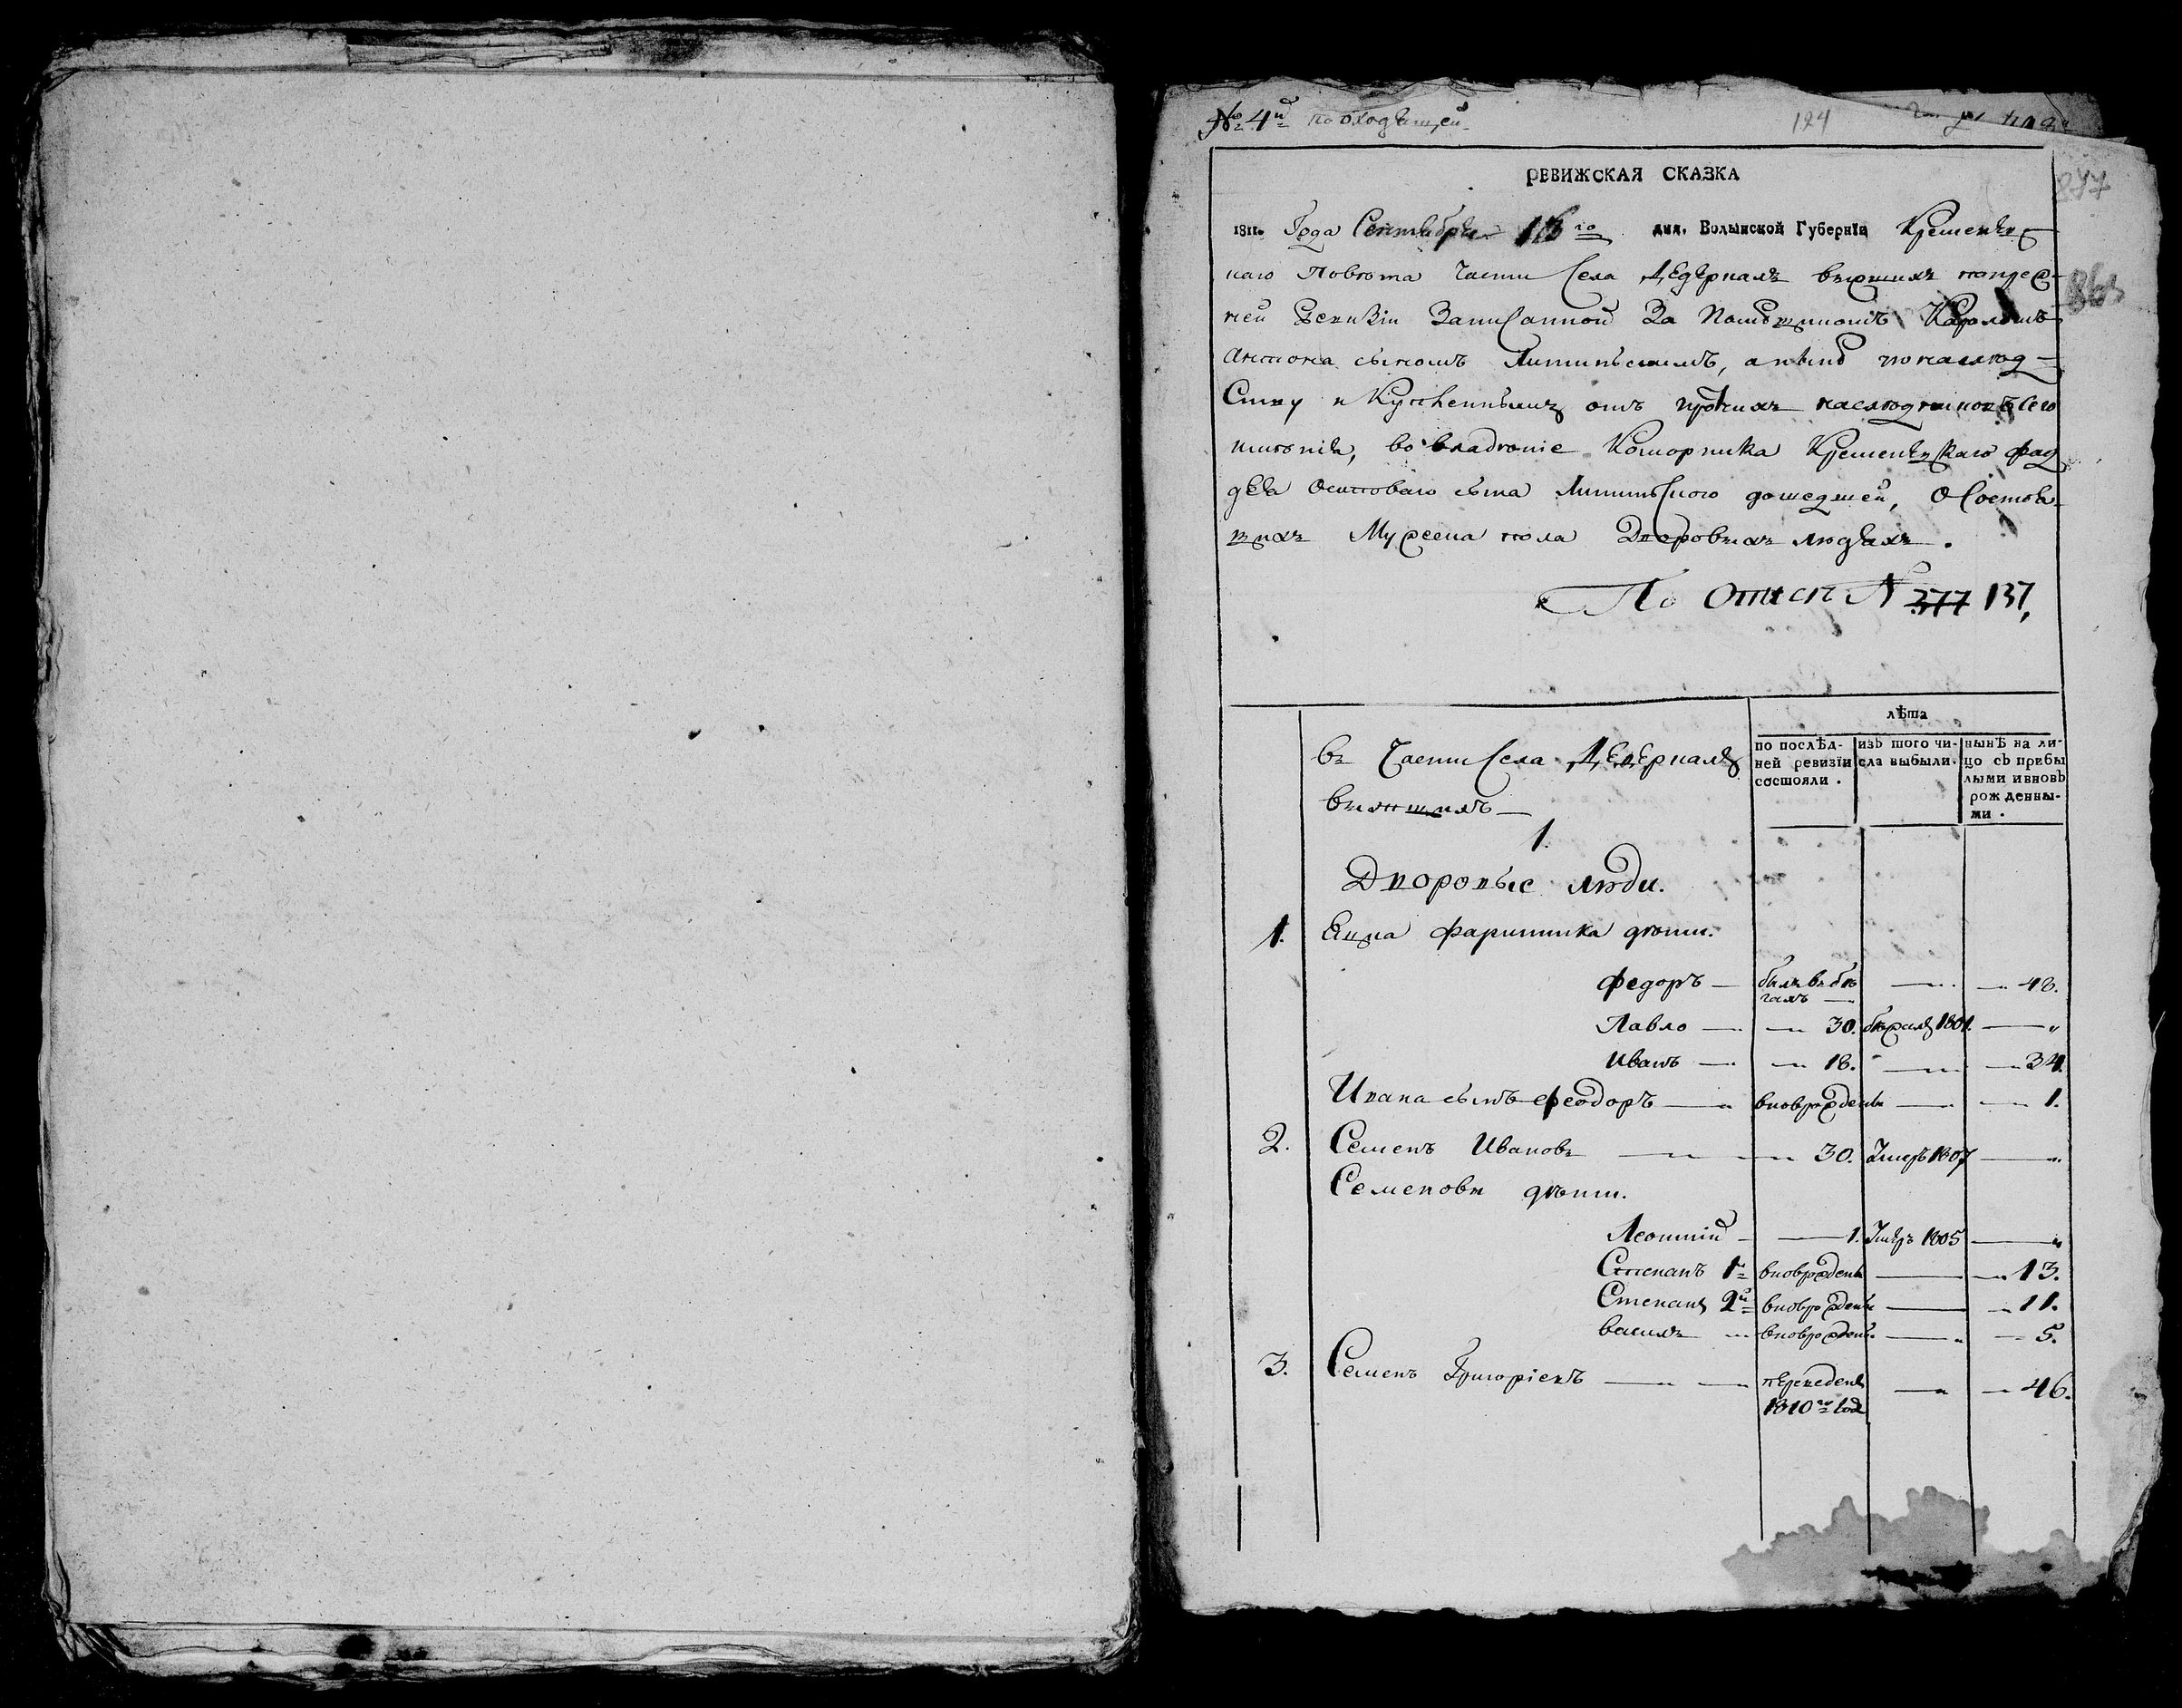 № 4й по входящей
124
РЕВИЖСКАЯ СКАЗКА
877
1811. Года Сентября 16го дня. Волынской Губернїи Кременец-
каго Повѣта Части Села Дедеркалъ вышшихъ попреж-
ней Ревизіи Записанной За Помѣщикомъ Каролемъ
Антона сыномъ Липинскимъ, а нынѣ понаслѣд-
Ству и Купленнымъ отъ прочихъ наслѣдниковъ сего
имѣнія, во владѣніе Коморника Кременецкаго Фад
дея Осиповаго сына Липинского дошедшей, О Состоя-
щихъ Мужеска пола Дворовыхъ людяхъ.
По Описи № 377 137,
въ Части Села Дедеркалъ
вышшихъ
лѣта
по послѣд-
ней ревизїи
состояли.
изъ того чи-
сла выбыли.
нынѣ на ли-
цо съ прибы
лыми и вновь
рожденны-
ми.
1.
Дворовые люди.
1. Яцка Фаринника дѣти.
Федоръ — былъ въ бѣ — 48.
гахъ —
Павло — 30. бѣжалъ 1801. — „
Иванъ — 18. — 34.
Ивана сынъ Феодоръ — вноврожденъ — 1.
2. Семенъ Ивановъ — 30. Умеръ 1807 — „
Семеновы дѣти.
Леонтій — 1. Умеръ 1805 — „
Степанъ 1й вноврожденъ — 13.
Степанъ 2й вноврожденъ — 11.
Василь — вноврожденъ — 5.
3. Семенъ Григоріевъ — переведенъ — 46.
1810го года